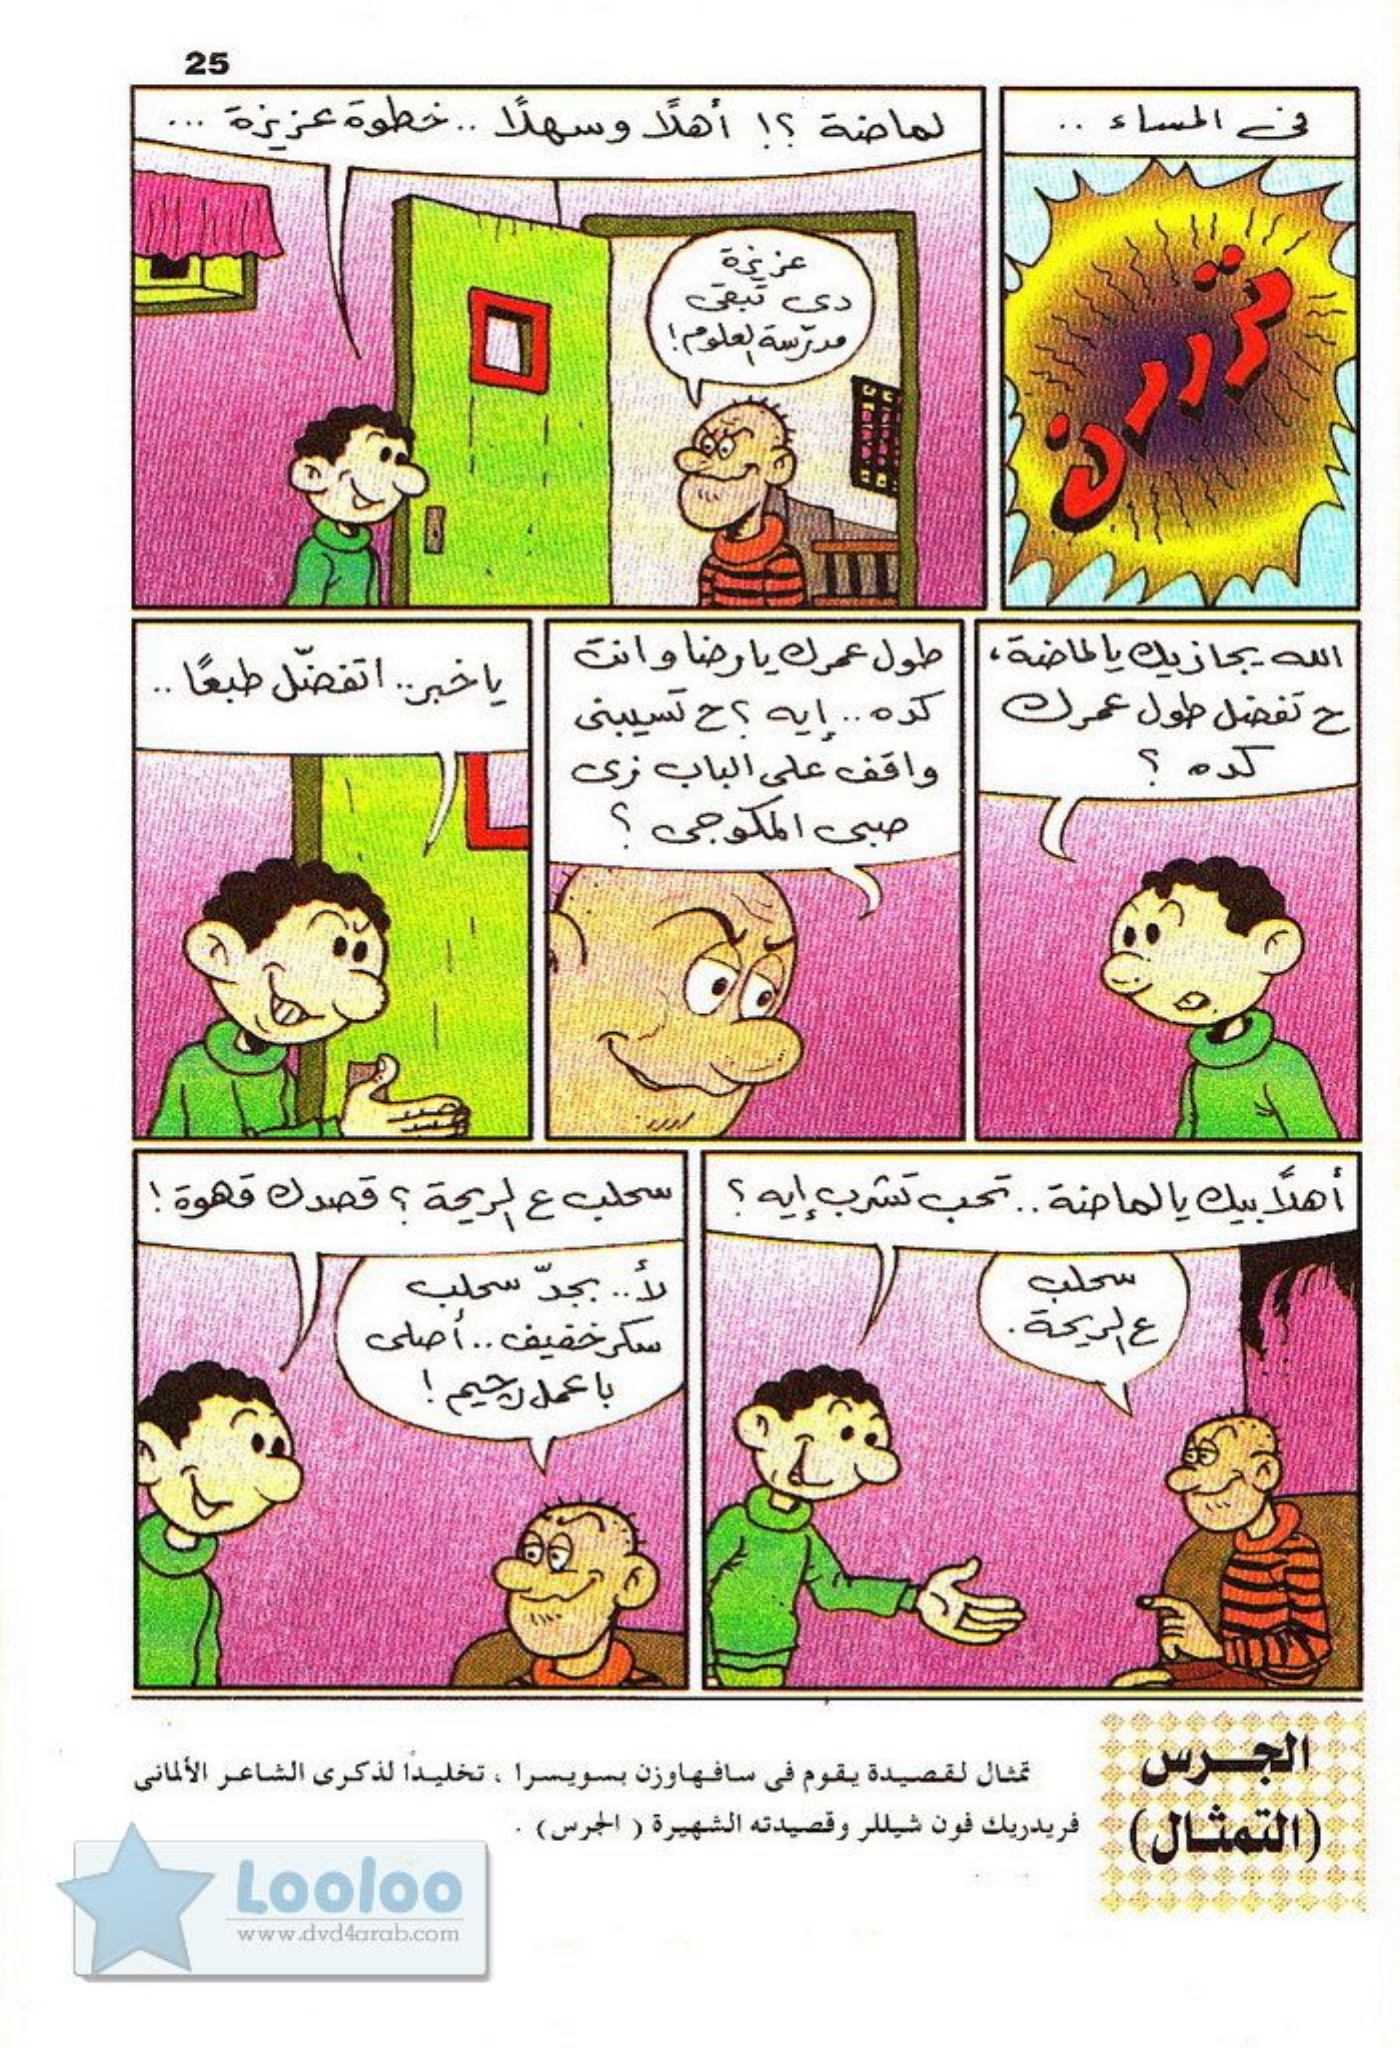 25
فى المساء ..
تررررن
لماضة ؟! أهلًا وسهلًا .. خطوة عزيزة ...
عزيزة
دى تبقى
مدرّسة العلوم!
الله يجازيك يا لماضة،
ح تفضل طول عمرك
كده ؟
طول عمرك يا رضا وانت
كده .. إيه ؟ ح تسيبنى
واقف على الباب زى
صبى المكوجى ؟
يا خبر.. اتفضّل طبعًا ..
أهلًا بيك يا لماضة .. تحب تشرب إيه ؟
سحلب
ع الريحة.
سحلب ع الريحة ؟ قصدك قهوة !
لأ.. بجدّ سحلب
سكر خفيف .. أصلى
با عمل رجيم !
الجرس
(التمثال)
تمثال لقصيدة يقوم فى سافهاوزن بسويسرا ، تخليداً لذكرى الشاعر الألمانى
فريدريك فون شيللر وقصيدته الشهيرة ( الجرس ) .
Looloo
www.dvd4arab.com